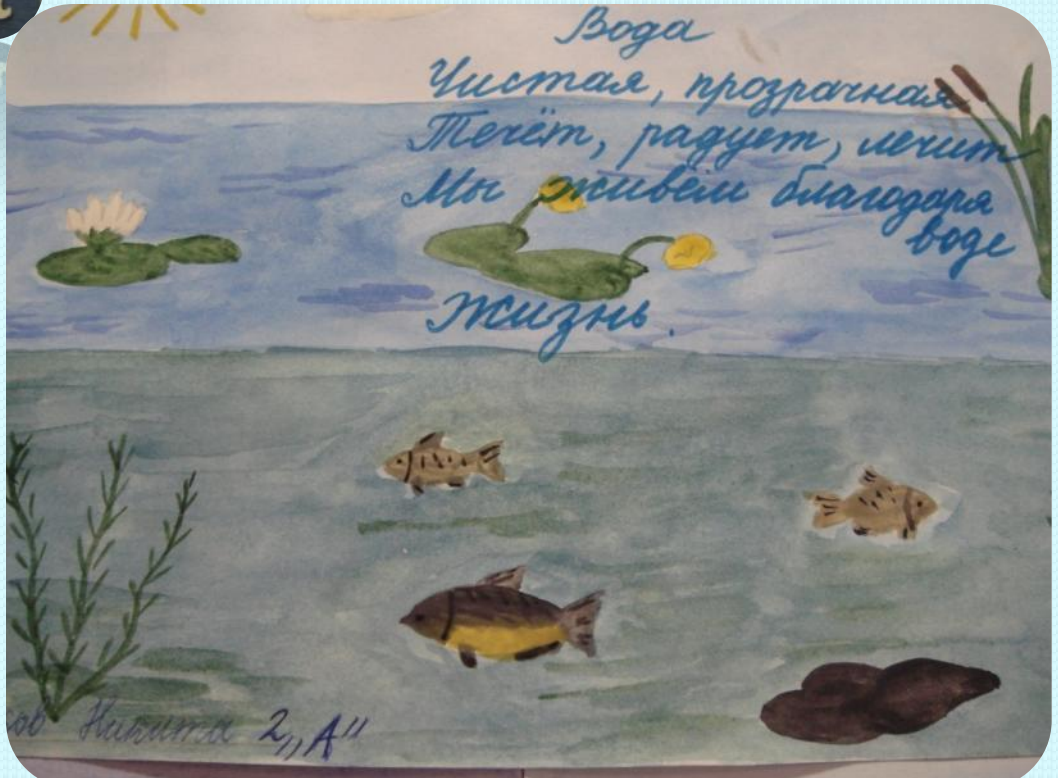 Вода
Чистая, прозрачная
Течёт, радует, лечит
Мы живём благодаря
воде
Жизнь.
ов Никита 2 „А"